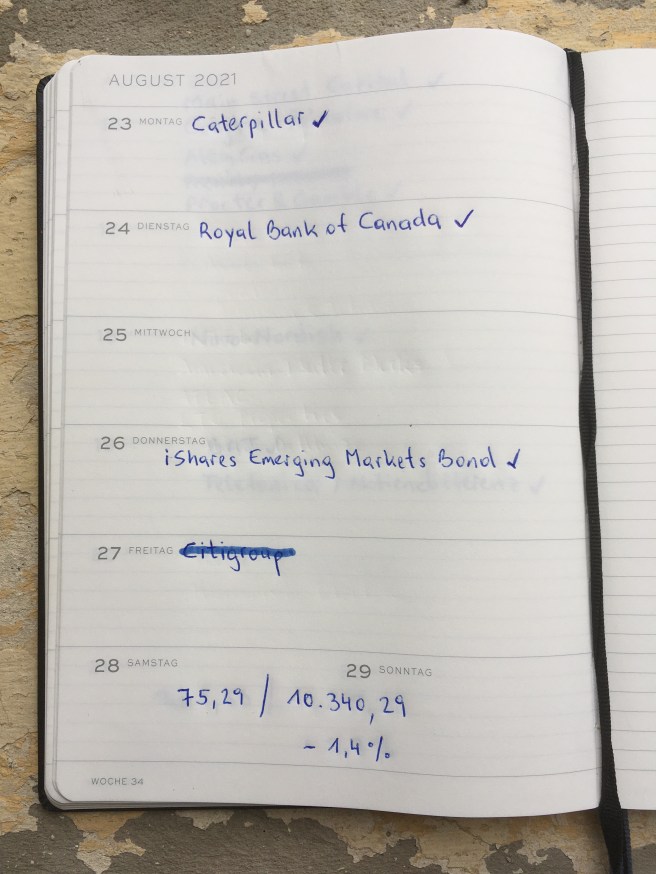 AUGUST 2021
23 MONTAG Caterpillar ✓
24 DIENSTAG Royal Bank of Canada ✓
25 MITTWOCH
26 DONNERSTAG
iShares Emerging Markets Bond ✓
27 FREITAG Citigroup
28 SAMSTAG 29 SONNTAG
75,29 / 10.340,29
- 1,4%
WOCHE 34